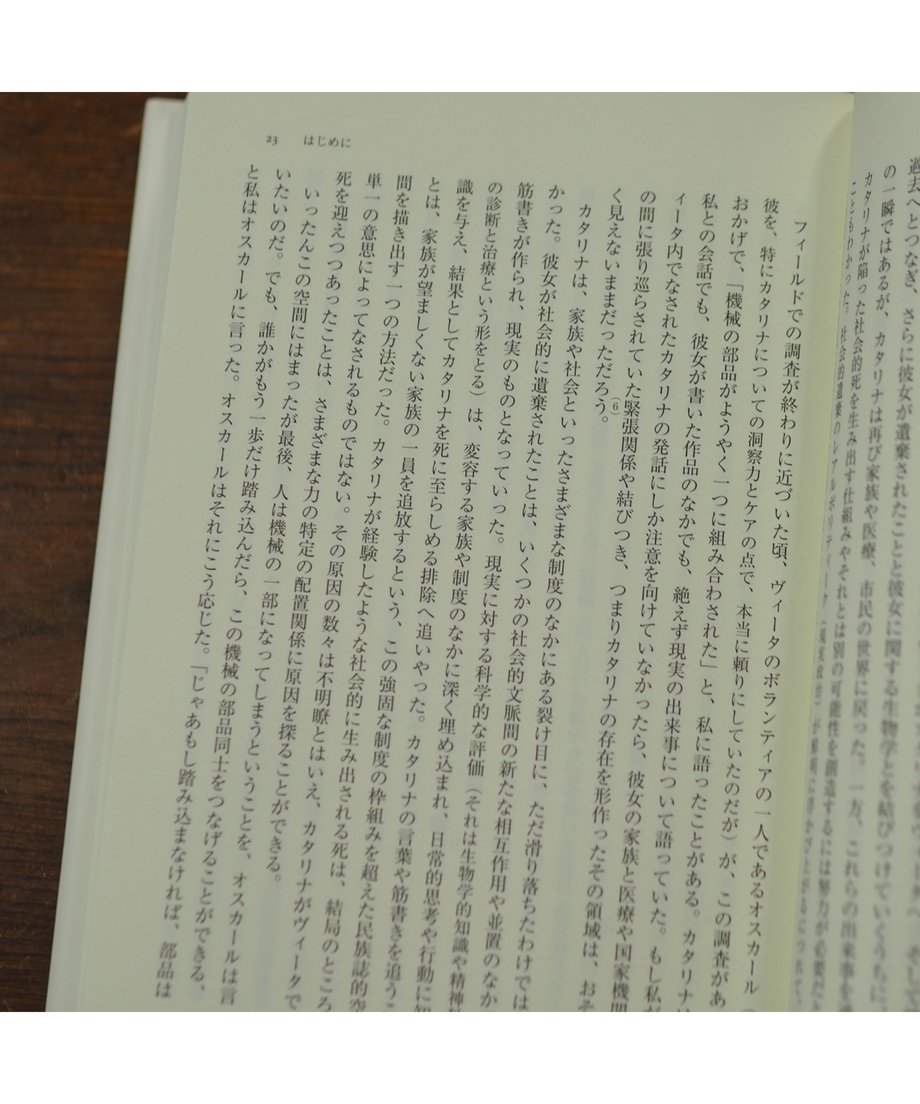 過去へとつなぎ、さらに彼女が遺棄されたことと彼女に関する生物学とを結びつけていくうちに、
の一瞬ではあるが、カタリナは再び家族や医療、市民の世界に戻った。一方、これらの出来事を
カタリナが陥った社会的死を生み出す仕組みやそれとは別の可能性を創造するには努力が必要だと
こともわかった。社会的遺棄のレアルポリティーク（現実政治）が
23 はじめに
フィールドでの調査が終わりに近づいた頃、ヴィータのボランティアの一人であるオスカール（
彼を、特にカタリナについての洞察力とケアの点で、本当に頼りにしていたのだが）が、この調査があ
おかげで、「機械の部品がようやく一つに組み合わされた」と、私に語ったことがある。カタリナは
私との会話でも、彼女が書いた作品のなかでも、絶えず現実の出来事について語っていた。もし私が
ィータ内でなされたカタリナの発話にしか注意を向けていなかったら、彼女の家族と医療や国家機関
の間に張り巡らされていた緊張関係や結びつき、つまりカタリナの存在を形作ったその領域は、おそ
く見えないままだっただろう。(6)
カタリナは、家族や社会といったさまざまな制度のなかにある裂け目に、ただ滑り落ちたわけでは
かった。彼女が社会的に遺棄されたことは、いくつかの社会的文脈間の新たな相互作用や並置のなか
筋書きが作られ、現実のものとなっていった。現実に対する科学的な評価（それは生物学的知識や精神
の診断と治療という形をとる）は、変容する家族や制度のなかに深く埋め込まれ、日常的思考や行動に知
識を与え、結果としてカタリナを死に至らしめる排除へ追いやった。カタリナの言葉や筋書きを追うこ
とは、家族が望ましくない家族の一員を追放するという、この強固な制度の枠組みを超えた民族誌的空
間を描き出す一つの方法だった。カタリナが経験したような社会的に生み出される死は、結局のところ
単一の意思によってなされるものではない。その原因の数々は不明瞭とはいえ、カタリナがヴィータで
死を迎えつつあったことは、さまざまな力の特定の配置関係に原因を探ることができる。
いったんこの空間にはまったが最後、人は機械の一部になってしまうということを、オスカールは言
いたいのだ。でも、誰かがもう一歩だけ踏み込んだら、この機械の部品同士をつなげることができる、
と私はオスカールに言った。オスカールはそれにこう応じた。「じゃあもし踏み込まなければ、部品は